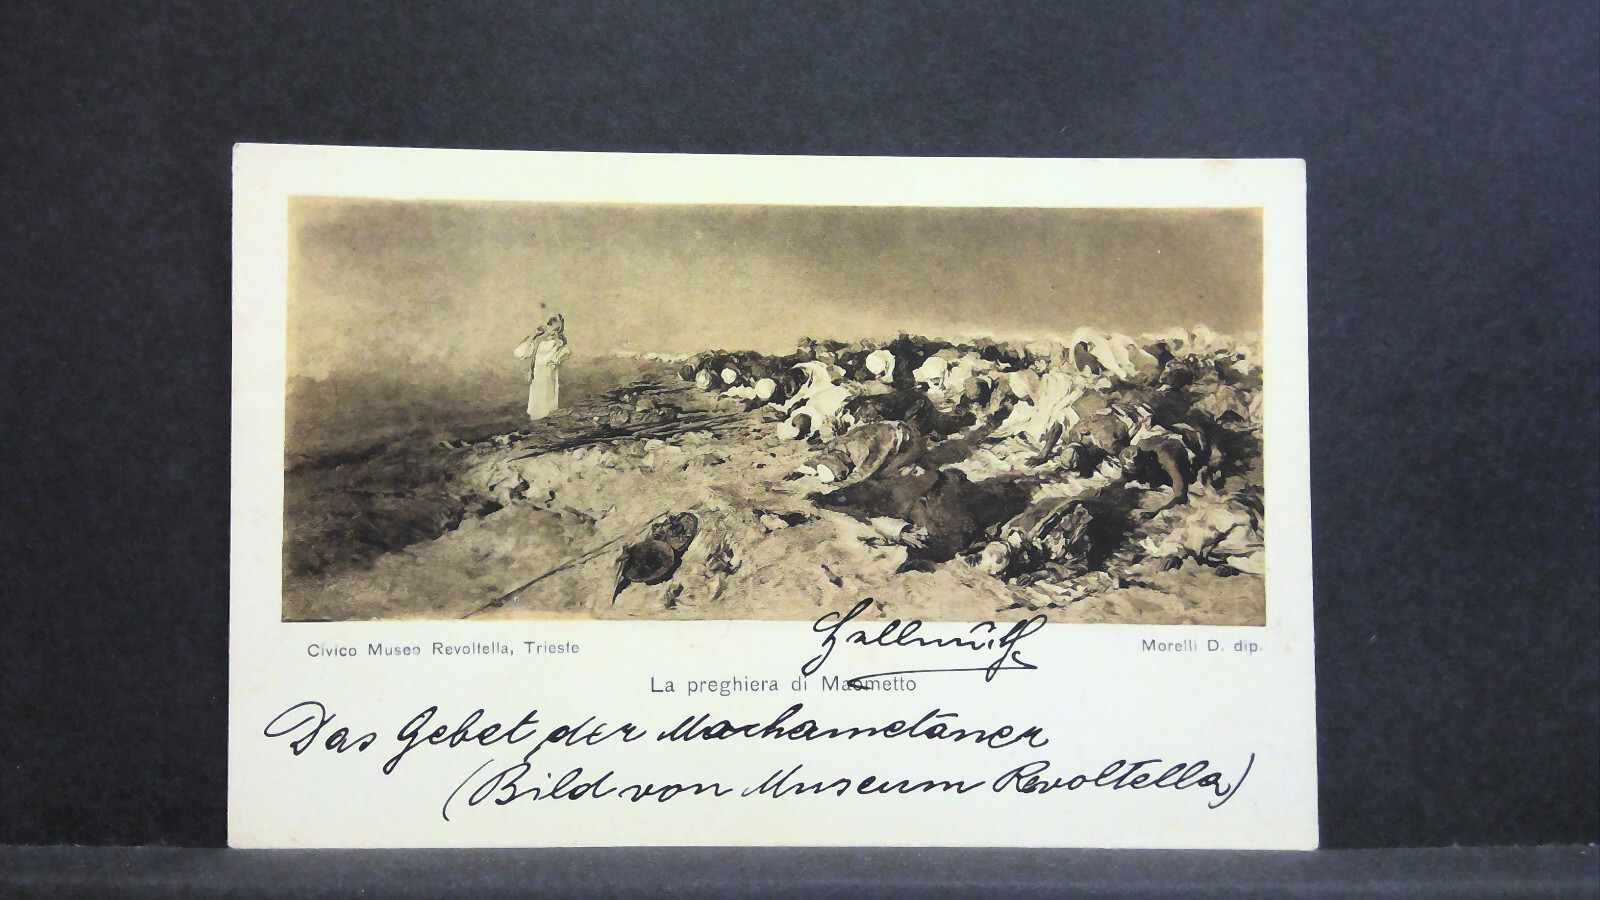 Civico Museo Revoltella, Trieste
Morelli D. dip.
La preghiera di Maometto
Das Gebet der Machametäner
(Bild von Museum Revoltella)